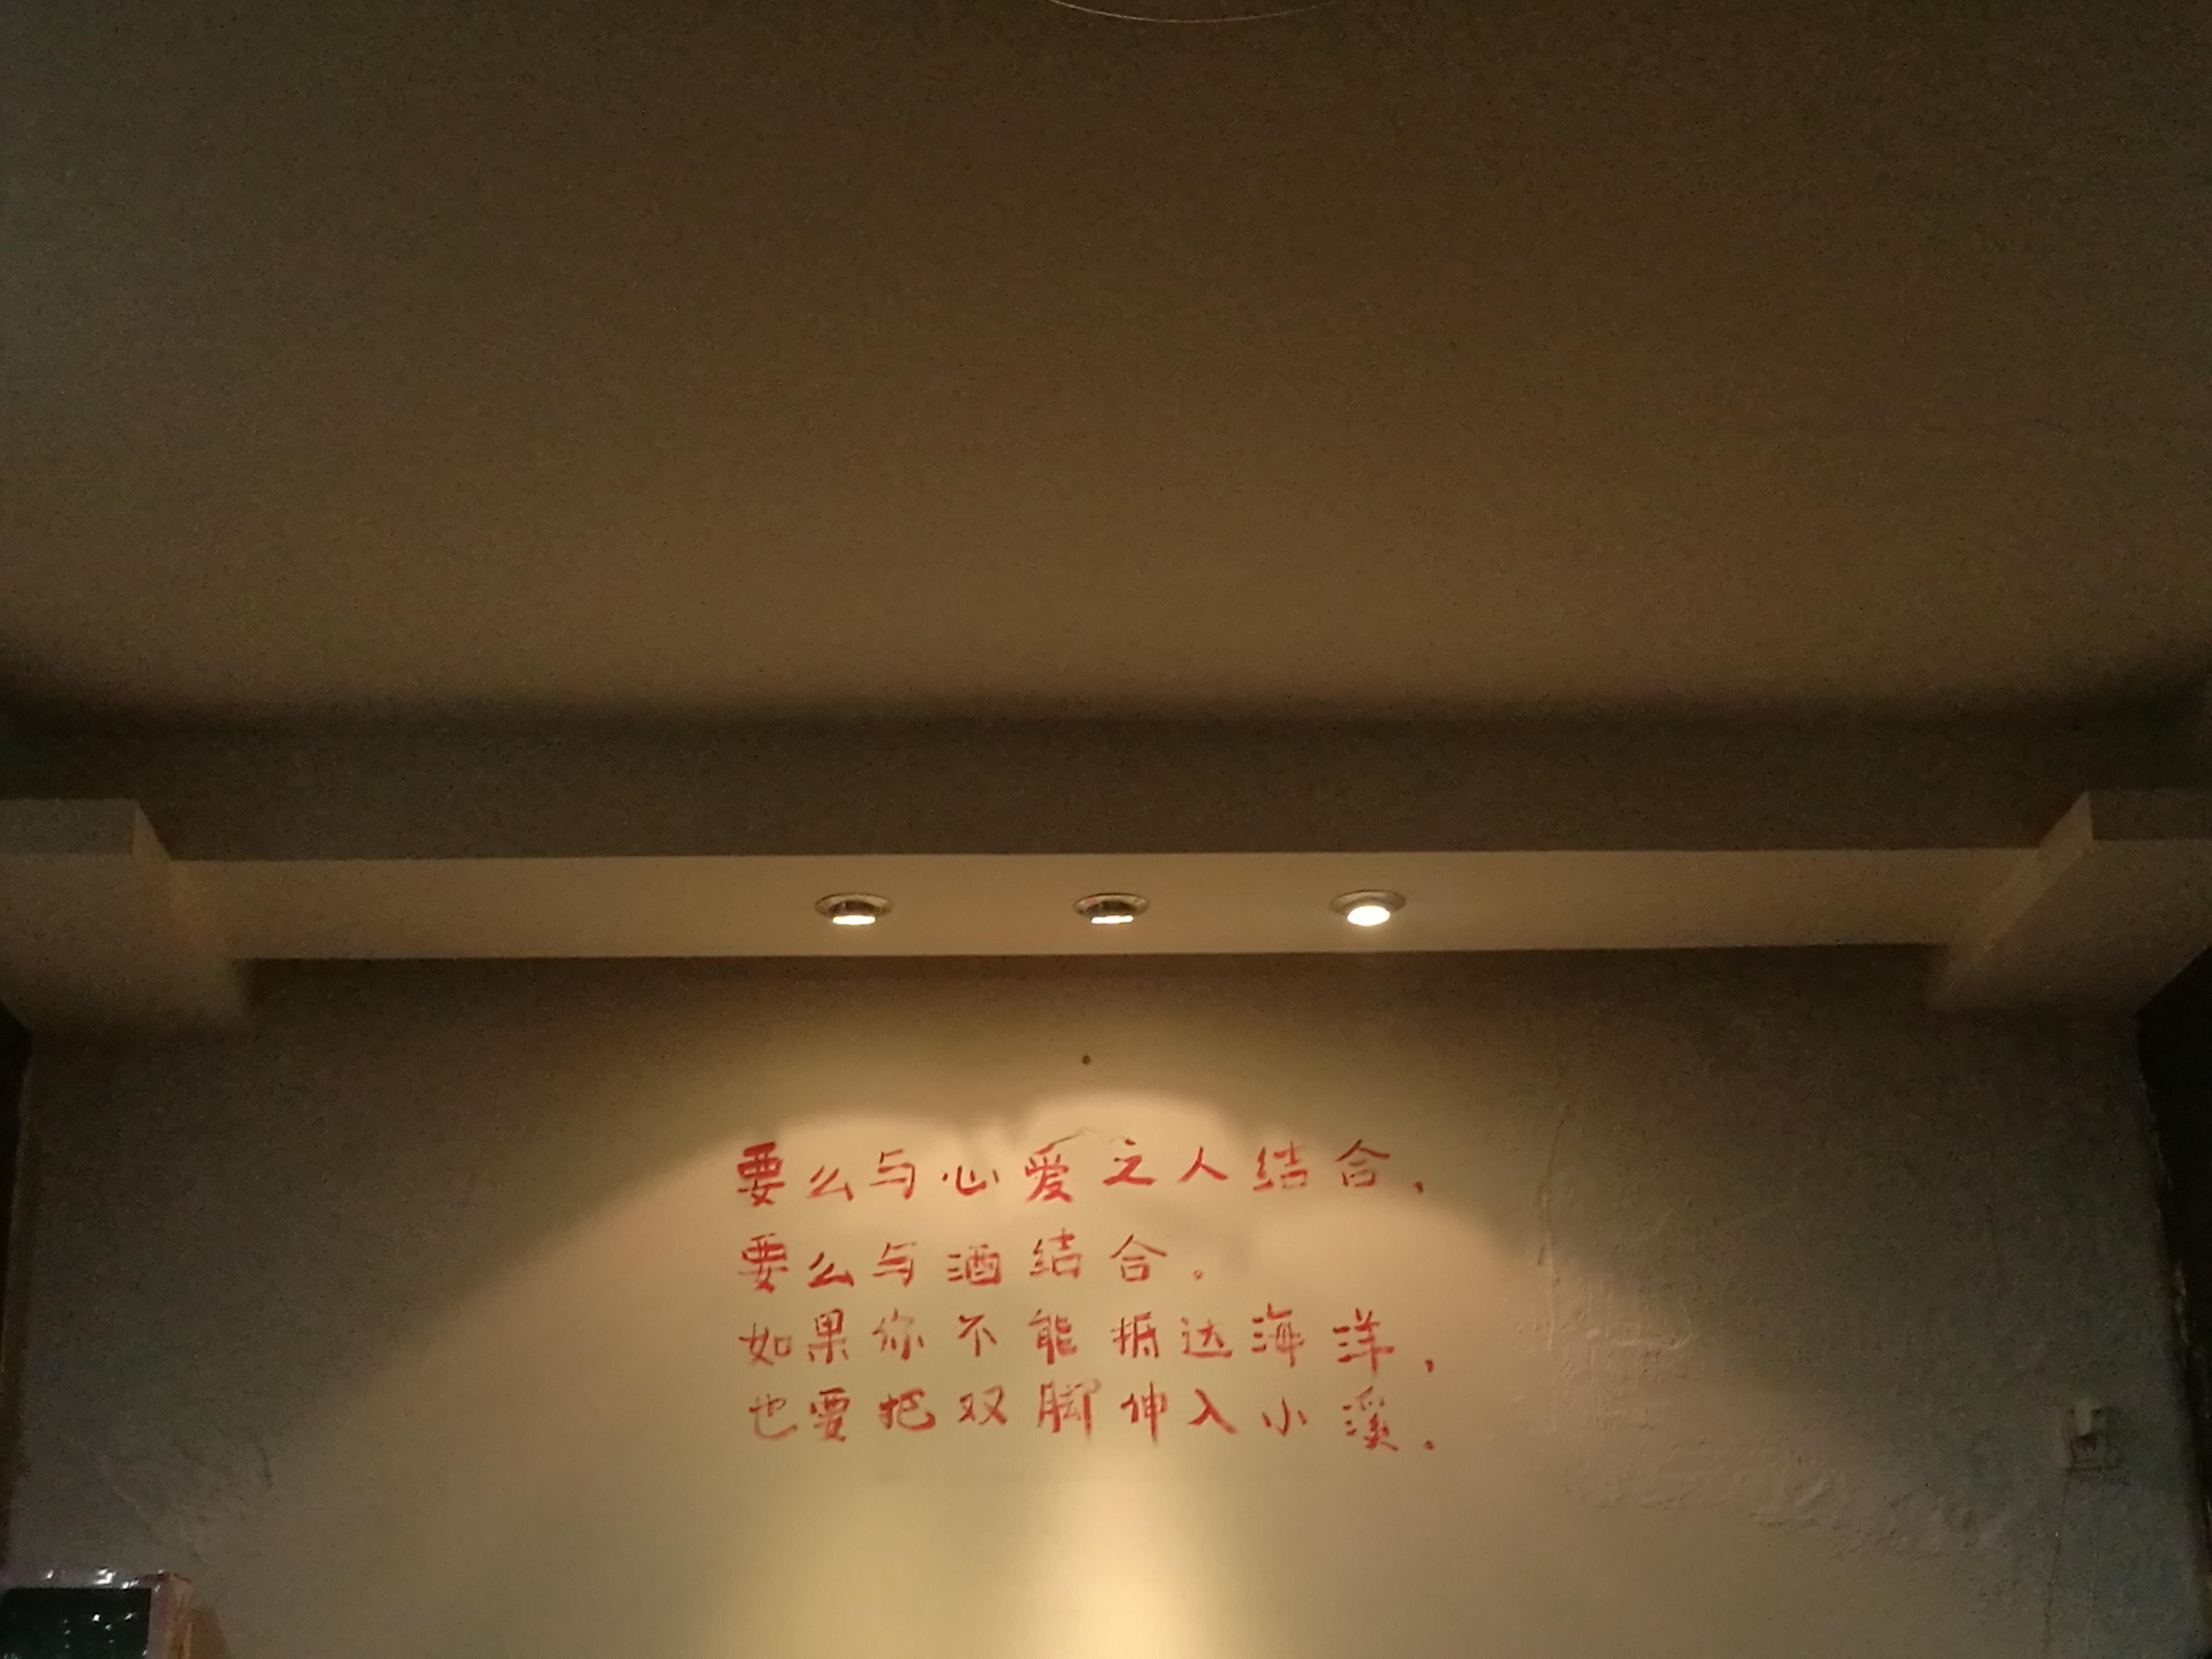 要么与心爱之人结合，
要么与酒结合。
如果你不能抵达海洋，
也要把双脚伸入小溪。